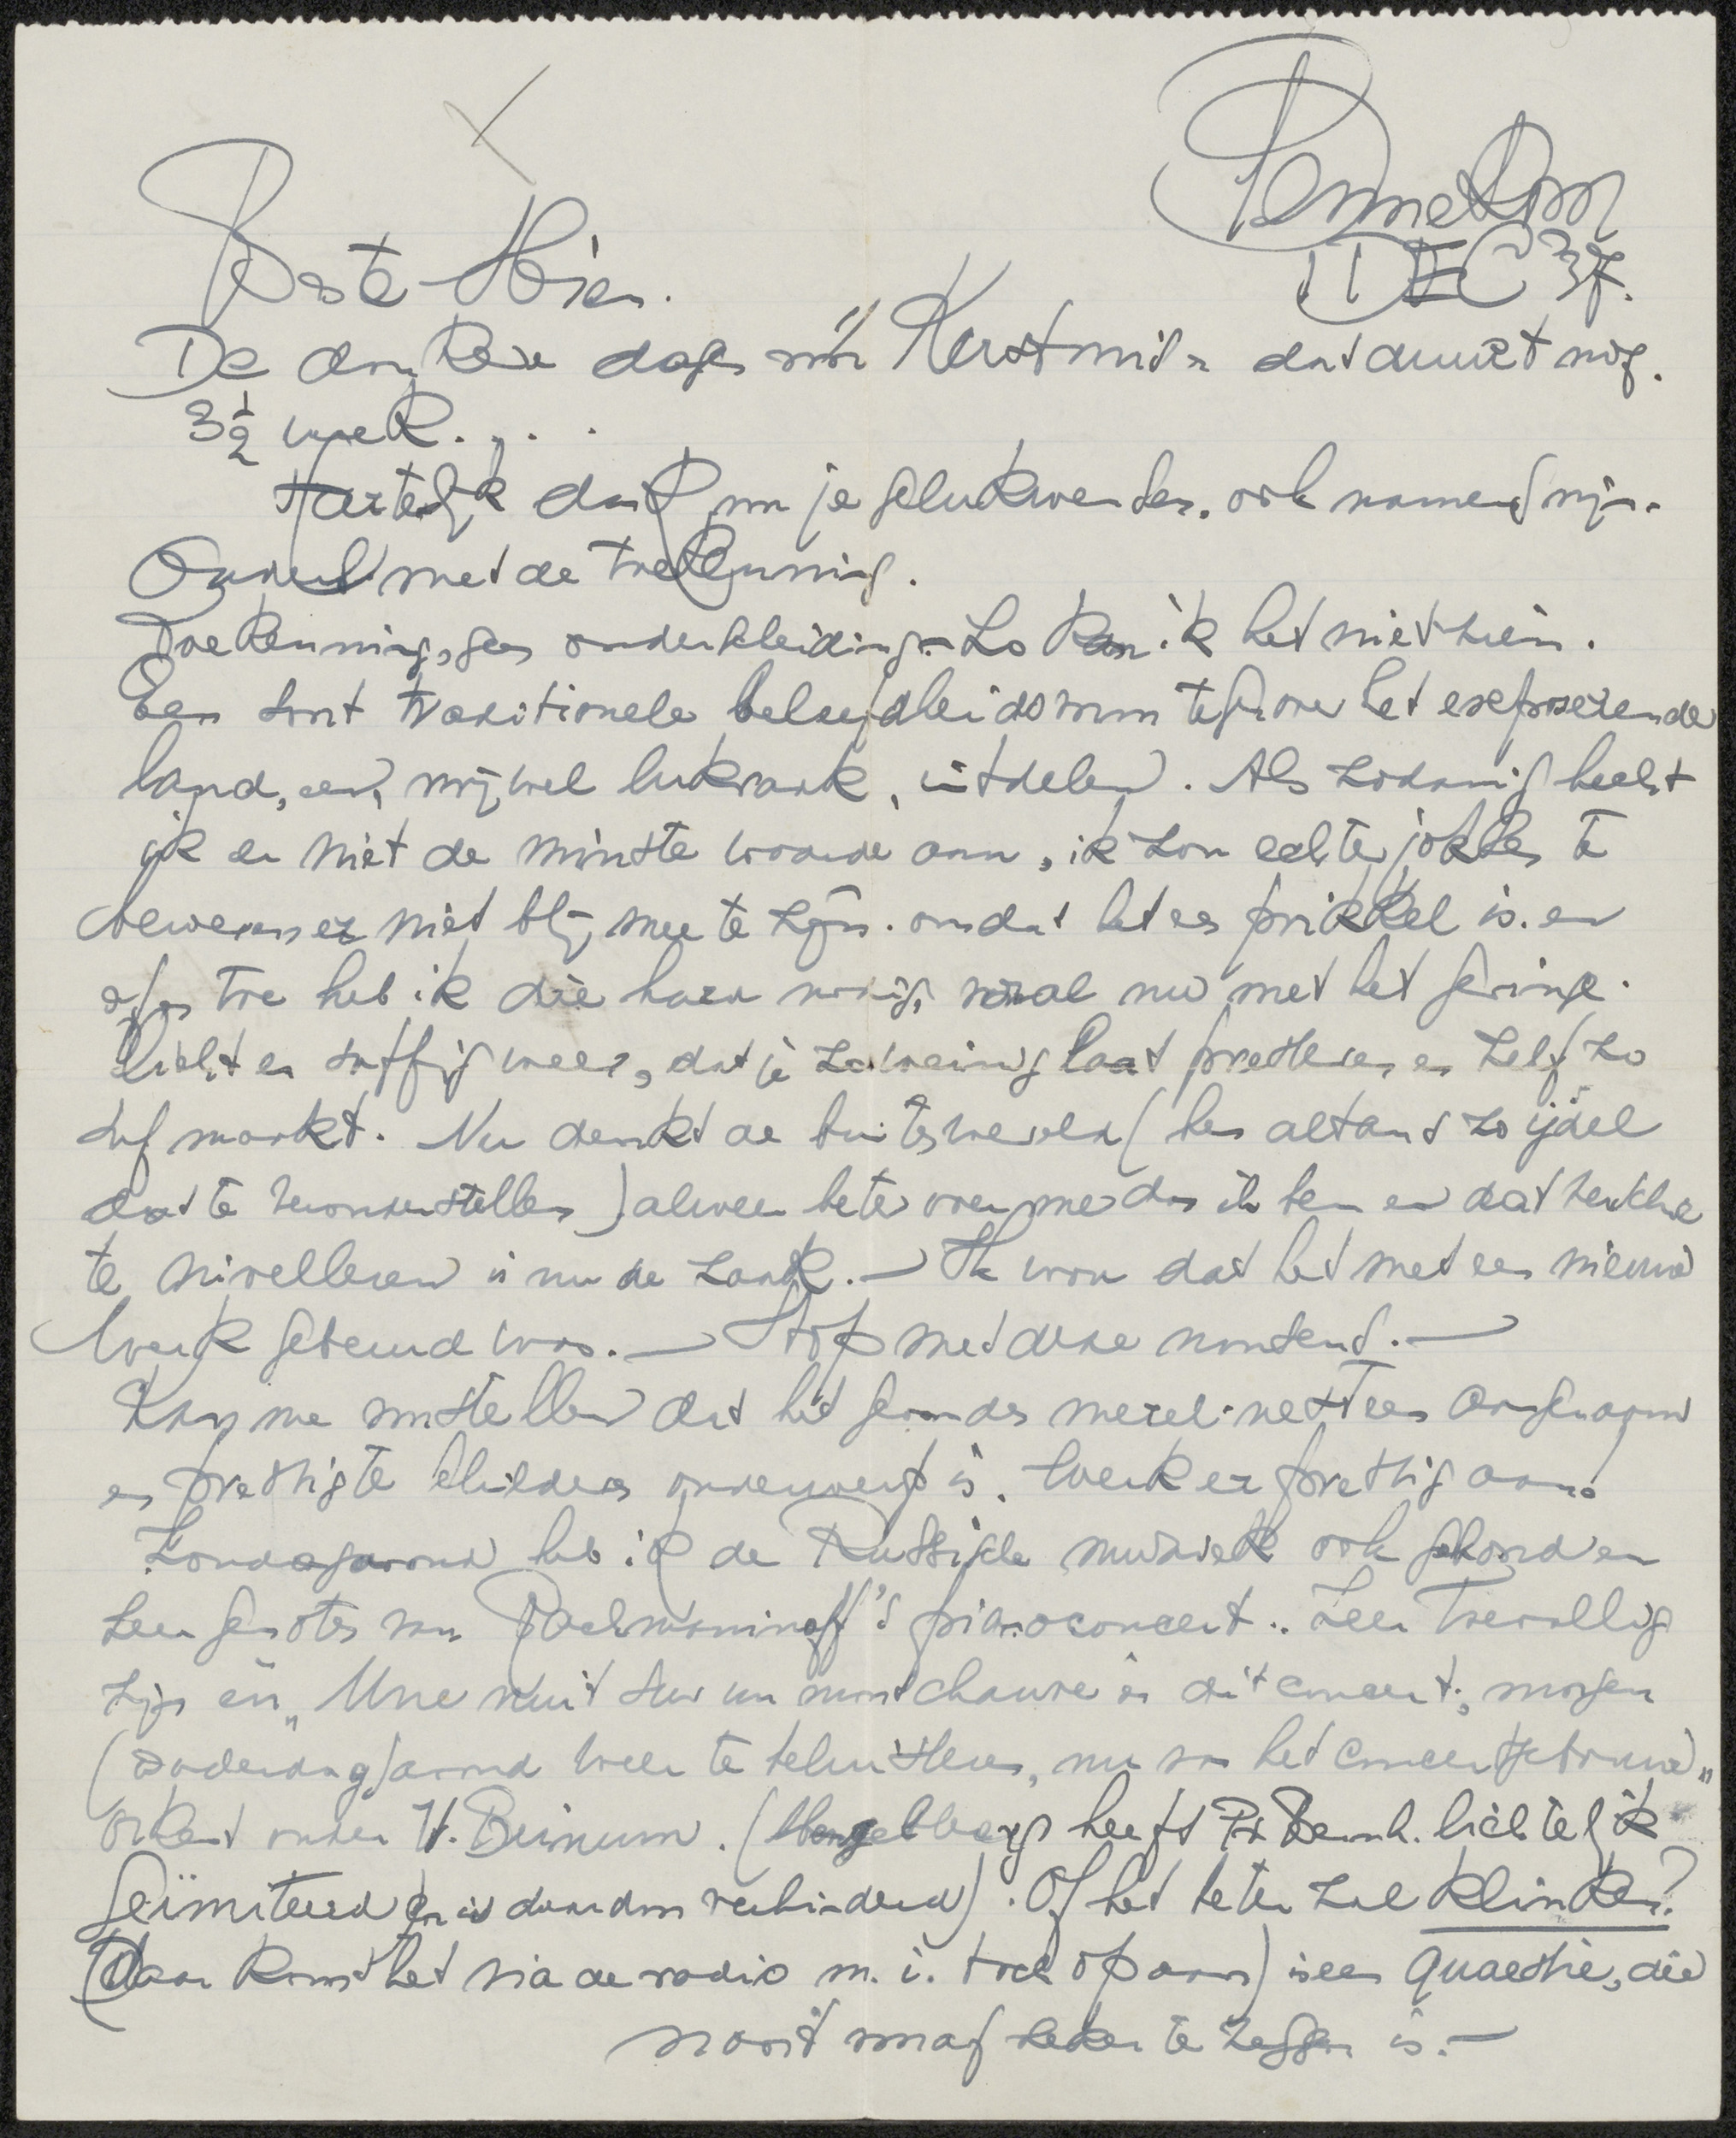 Bennekom
1 DEC 37.
Beste Hein.
De donkere dagen vóór Kerstmis en dat duurt nog
3½ week. . . .
Hartelijk dank voor je gelukwensen. ook namens mijn
met de toekenning.
Toekenning, geen onderscheiding. Zo kan ik het niet zien.
Een soort traditionele beleefdheidsvorm tegenover het exposerende
land, een, vrijwel lukraak, uitdelen. Als zodanig hecht
ik er niet de minste waarde aan, ik zou echter jokken te
beweren er niet blij mee te zijn. omdat het een prikkel is. en
af en toe heb ik die hard nodig, vooral nu met het geringe
licht en suffig weer, dat je zo weinig laat presteren en zelf zo
suf maakt. Nu denkt de buitenwereld (ben althans zo ijdel
dat te veronderstellen) alweer beter over me dan ik ben en dat verschil
te nivelleren is nu de zaak. — Ik wou dat het met een nieuw
werk gebeurd was. — Stop met deze nonsens. —
Kan me voorstellen dat het gevonden merelnest een aangenaam
en prettig te schilderen onderwerp is. Werk er prettig aan!
Zondagavond heb ik de Russische muziek ook gehoord en
zeer genoten van Rachmaninoff's pianoconcert. Zeer toevallig
zijn én „Une nuit sur un mont chauve én dit concert, morgen
(donderdag) avond weer te beluisteren, nu van het concertgebouw„
orkest onder v. Beinum. (Mengelberg heeft Pr. Bernh. lichtelijk
geïmiteerd en is daardoor verhinderd). Of het beter zal klinken?
(Daar komt het via de radio m.i. toch op aan) is een quaestie, die
nooit vooraf zeker te zeggen is. —